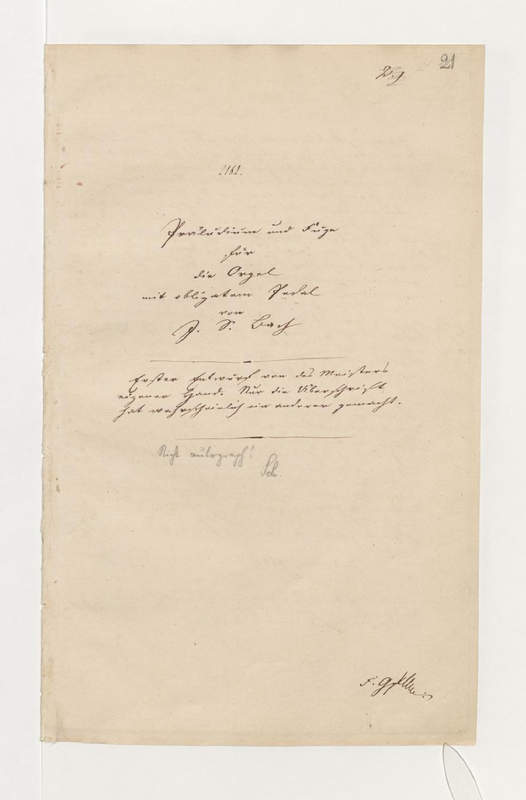 21
182.
Präludium und Fuge
für
die Orgel
mit obligatem Pedal
von
J. S. Bach
Erster Entwurf von des Meisters
eigener Hand. Nur die Überschrift
hat wahrscheinlich ein anderer gemacht.
Nicht autograph!
Sch.